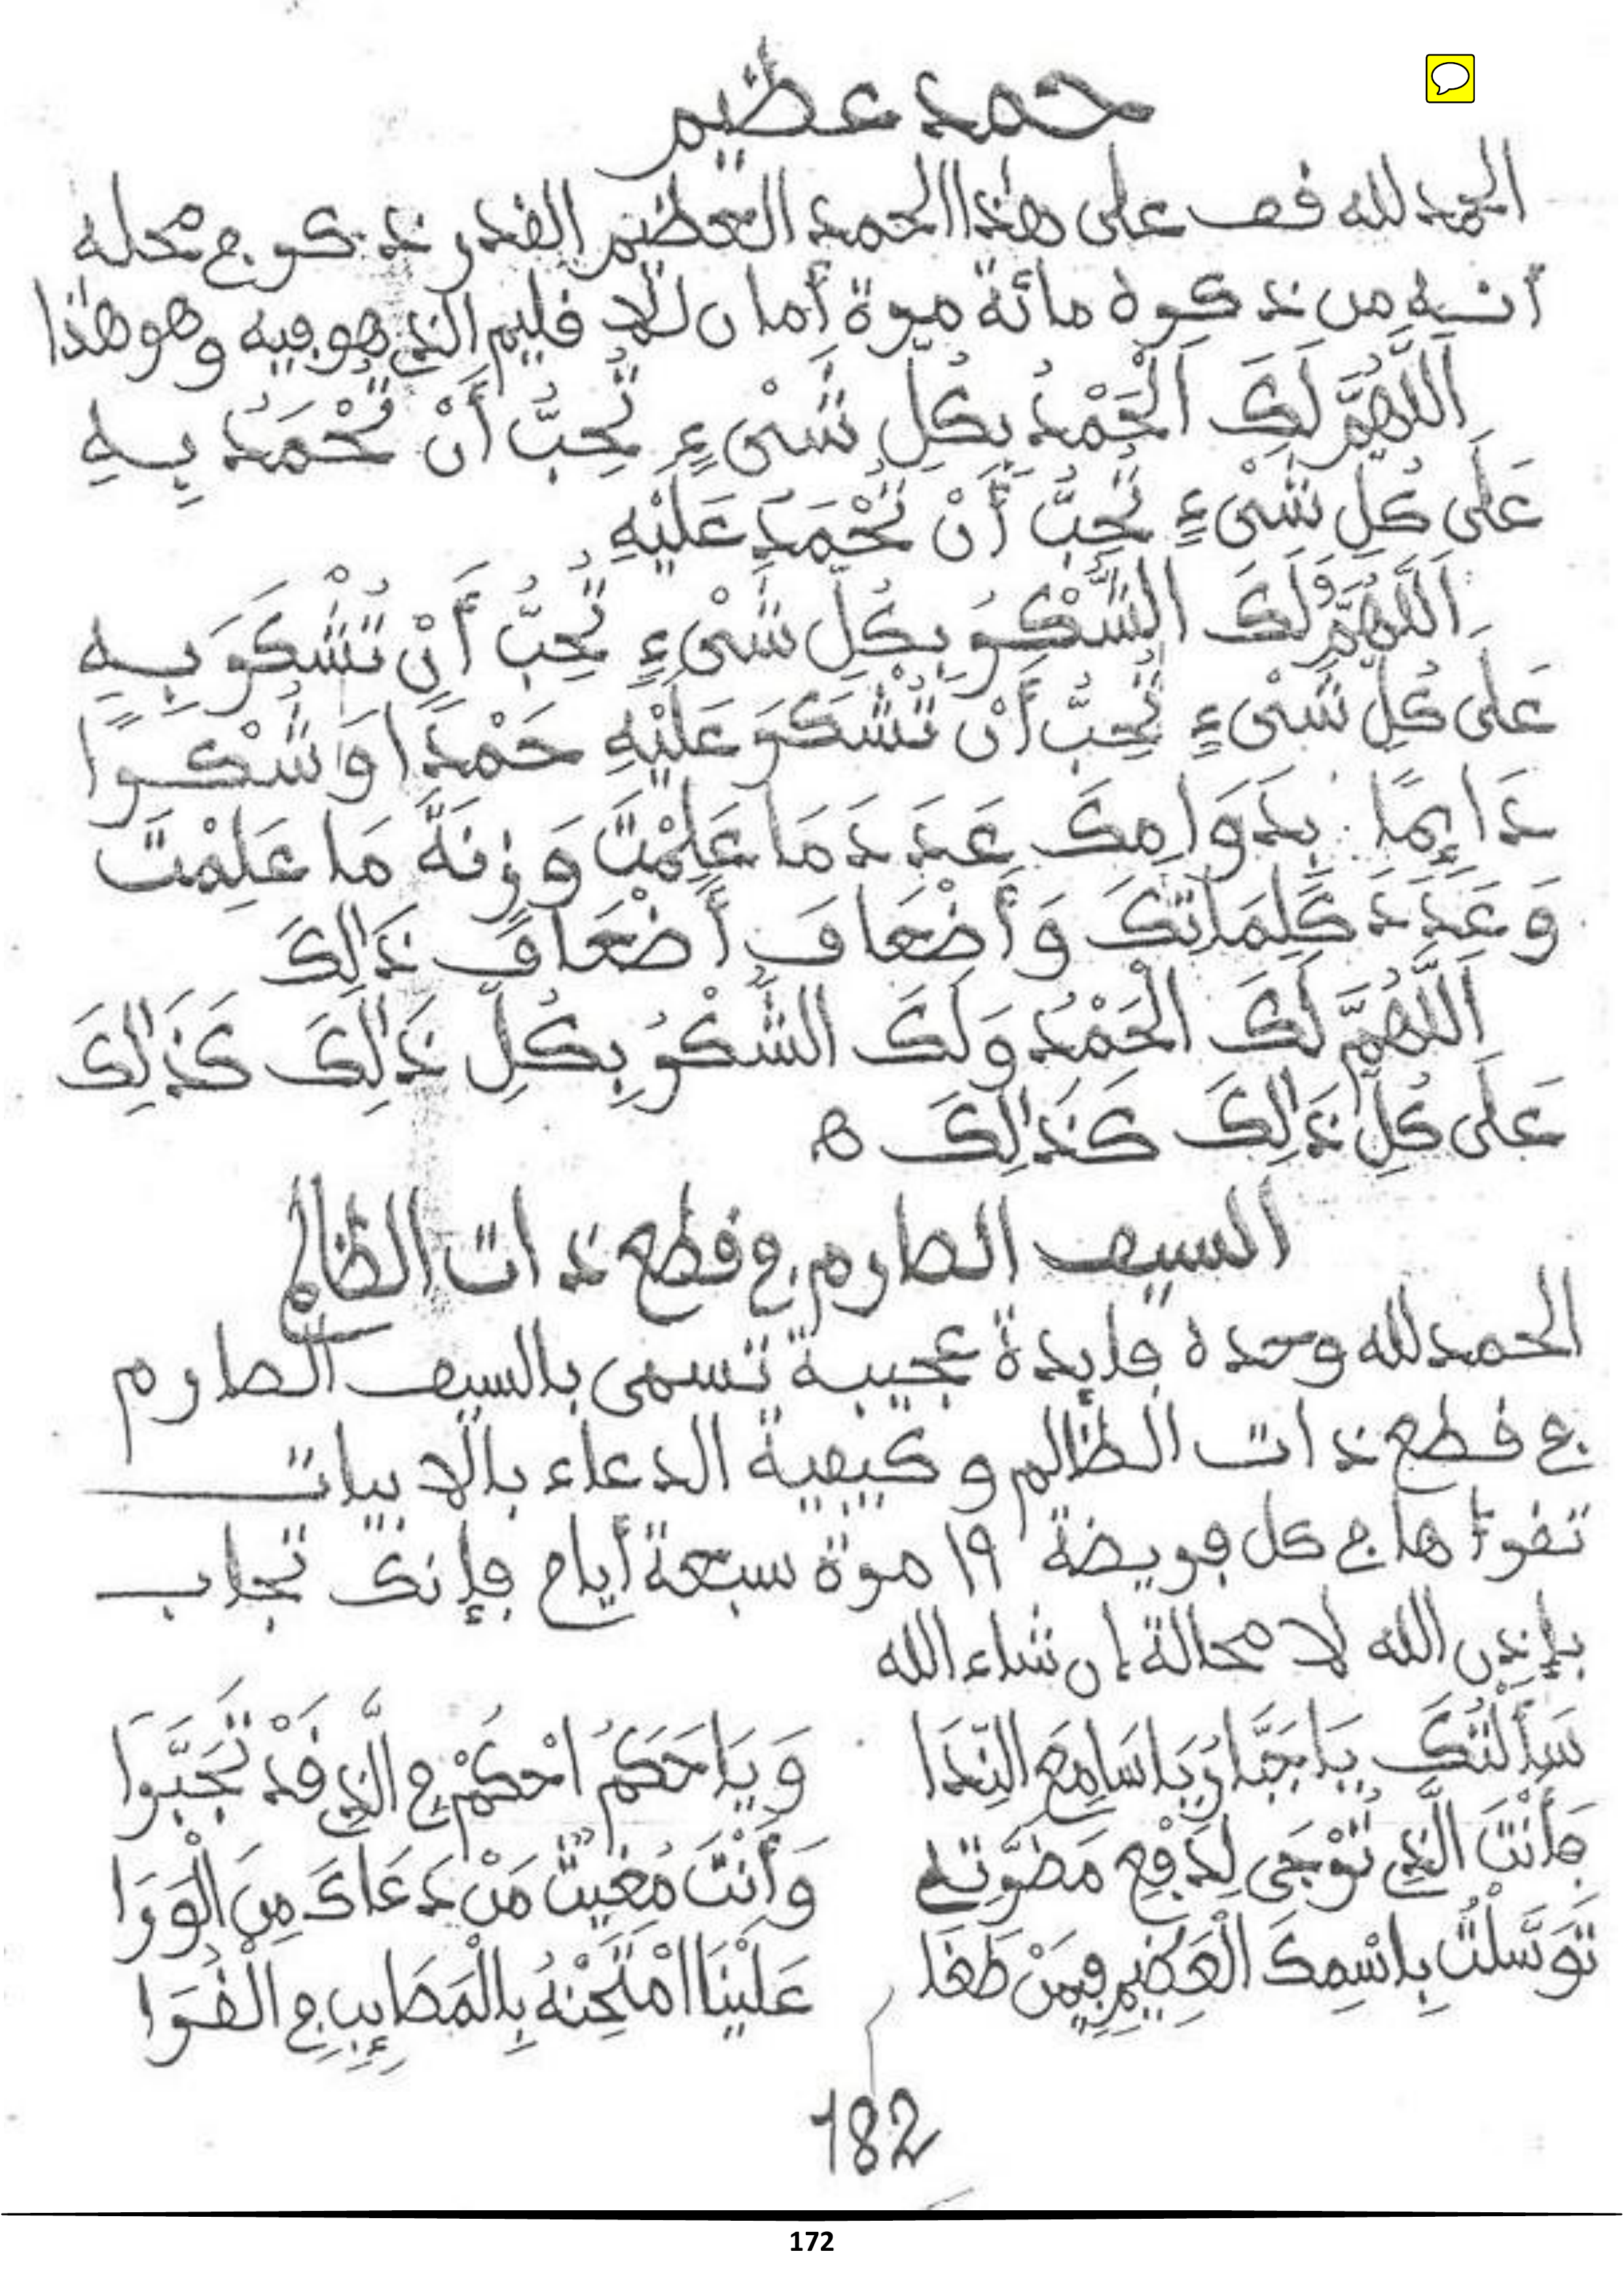 حمد عظيم
الحمد لله قف على هذا الحمد العظيم القدر ذكر في محله
أنه من ذكره مائة مرة أمان للإقليم الذي هو فيه وهو هذا
اَللَّهُمَّ لَكَ اَلْحَمْدُ بِكُلِّ شَيْءٍ تُحِبُّ أَنْ تُحْمَدُ بِهِ
عَلَى كُلِّ شَيْءٍ تُحِبُّ أَنْ تُحْمَدَ عَلَيْهِ
اَللَّهُمَّ لَكَ الشُّكْرُ بِكُلِّ شَيْءٍ تُحِبُّ أَنْ تُشْكَرَ بِهِ
عَلَى كُلِّ شَيْءٍ تُحِبُّ أَنْ تُشْكَرَ عَلَيْهِ حَمْدًا وَشُكْرًا
دَائِمًا بِدَوَامِكَ عَدَدَ مَا عَلِمْتَ وَزِنَةَ مَا عَلِمْتَ
وَعَدَدَ كَلِمَاتِكَ وَأَضْعَافَ أَضْعَافِ ذَالِكَ
اَللَّهُمَّ لَكَ الْحَمْدُ وَلَكَ الشُّكْرُ بِكُلِّ ذَالِكَ كَذَالِكَ
عَلَى كُلِّ ذَالِكَ كَذَالِكَ ه
السيف الصارم في قطع ذات الظالم
الحمد لله وحده فايدة عجيبة تسمى بالسيف الصارم
في قطع ذات الظالم وكيفية الدعاء بالابيات
تقرأها في كل فريضة ١٩ مرة سبعة أيام فإنك تجاب
بإذن الله لا محالة إن شاء الله
سَأَلْتُكَ يَا جَبَّارُ يَا سَامِعَ النِّدَا وَيَا حَكَمُ احْكُمْ فِي الَّذِي قَدْ تَجَبَّرَا
فَأَنْتَ الَّذِي تُرْجَى لِدَفْعِ مَضَرَّتِي وَأَنْتَ مُغِيثُ مَنْ دَعَاكَ مِنَ الْوَرَا
تَوَسَّلْتُ بِاسْمِكَ الْعَظِيمِ فِيمَنْ طَغَا عَلَيْنَا امْتَحِنْهُ بِالْمَصَائِبِ فِي الْقُرَا
182
172